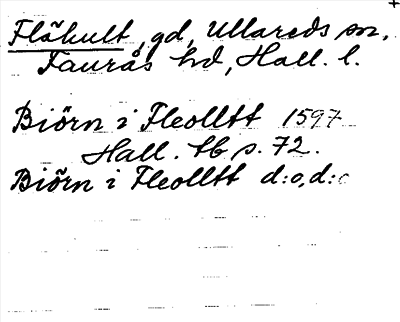 Flähult, gd, Ullareds sn,
Faurås hd, Hall. l.
Biörn i Fleolltt 1597
Hall. tb s. 72.
Biörn i Fleolltt d:o, d:o